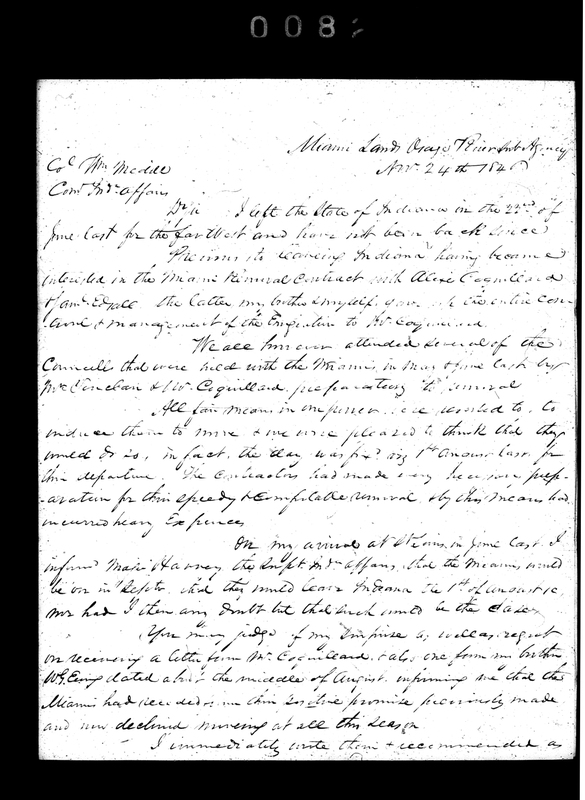 008
Miami Lands Osage River Sub Agency
Nov. 24th 1846
Col Wm Medill
Com Ind. affairs
Dr Sir I left the State of Indiana in the 22nd of
June last for the far West and have not been back since
Previous to leaving Indiana having became
interested in the Miami Removal Contract with Alexis Coquillard
& Saml Edsall, the latter my brother & myself, gave up the entire con-
-trol & management of the Emigration to Mr Coquillard.
We all however attended several of the
Councills that were held with the Miamis in May & June last by
Mr Sinclair & Mr Coquillard preparatory to removal
All fair means in our power were resorted to, to
induce them to move & we were pleased to think that they
would do so, in fact, the day was fixed viz 1st August last for
their departure. The contractors had made very heavy prep-
-aration for their speedy & comfortable removal & by this means had
incurred heavy Expences
On my arrival at St Louis in June last I
informed Major Harvey the Supt Ind. affairs, that the Miamis would
be on in Septr, that they would leave Indiana the 1st of August
nor had I then any doubt but that such would be the case
You may judge of my surprise as well as regret
on receiving a letter from Mr Coquillard & also one from my brother
W G Ewing dated about the middle of August informing me that the
Miamis had receded from their positive promise previously made
and now declined moving at all this Season
I immediately wrote them & recommended a